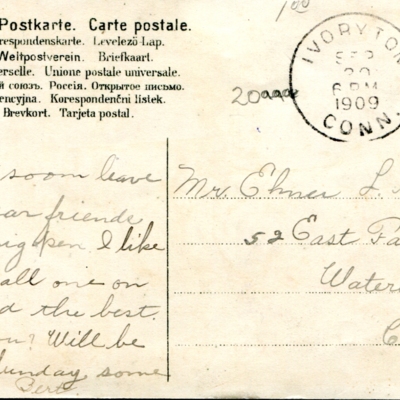 Postkarte. Carte postale.
respondenskarte. Levelező-Lap.
Weltpostverein. Briefkaart.
erselle. Unione postale universale.
й союзъ. Россія. Открытое письмо.
encyjna. Korespondenční listek.
Brevkort. Tarjeta postal.
1.00
20aaaa
IVORYTON
SEP
20
6 PM
1909
CONN.
soom leave
ar friends
igpen I like
all one on
d the best.
ou? Will be
unday some
Bert
Mr. Elmer L.
52 East Fa
Water
C